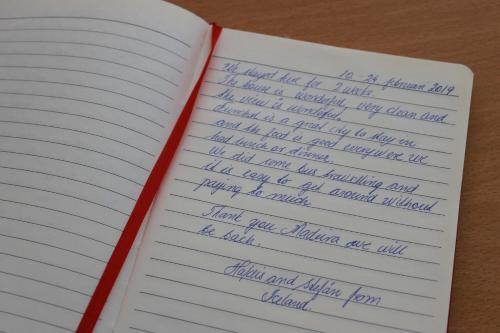 10. - 24 februar 2019
We stayed here for 2 weeks.
The house is wonderful, very clean and
the view is wonderful.
is a great city to stay in
and the food is good everywere we
had lunch or dinner.
We did some bus travelling and
it is easy to get around without
paying to much
Thank you Madura we will
be back.
and Stefán from
Iceland.